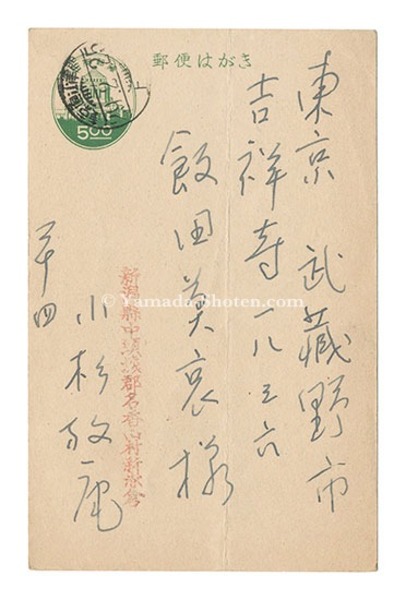 郵便はがき
5.00
東京 武藏野市
吉祥寺一八三六
飯田莫哀様
新潟縣中頸城郡名香山村新赤倉
小杉放庵
© Yamada-Shoten.com